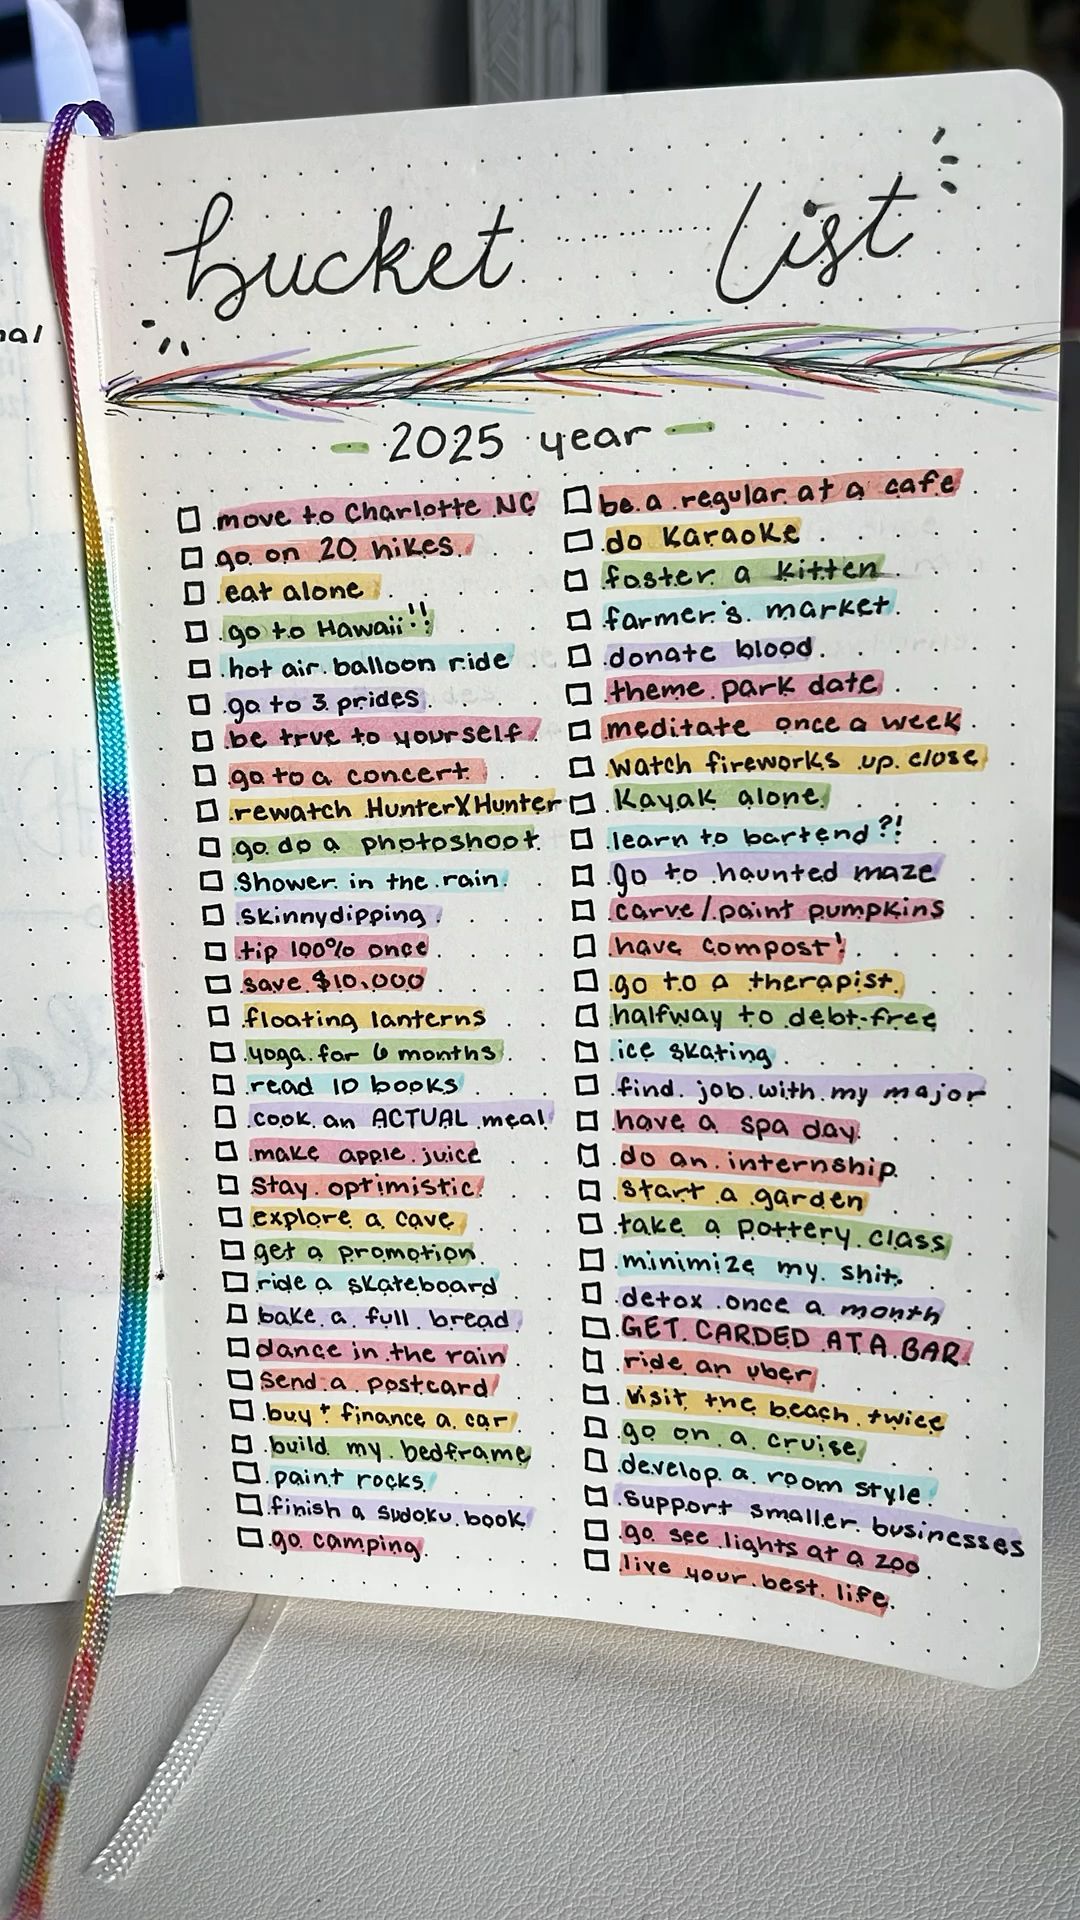 nal
bucket list
2025 year
move to Charlotte NC
go on 20 hikes.
eat alone
go to Hawaii!!
hot air balloon ride
go to 3 prides
be true to yourself.
go to a concert
rewatch HunterXHunter
go do a photoshoot
shower in the rain.
skinnydipping
tip 100% once
save $10,000
floating lanterns
yoga for 6 months
read 10 books
cook an ACTUAL meal
make apple juice
stay optimistic.
explore a cave
get a promotion
ride a skateboard
bake a full bread
dance in the rain
send a postcard
buy + finance a car
build my bedframe
paint rocks
finish a sudoku book
go camping
be a regular at a cafe
do Karaoke
foster a kitten
farmer's market
donate blood
theme park date
meditate once a week
watch fireworks up close
Kayak alone
learn to bartend?!
go to haunted maze
carve/paint pumpkins
have compost!
go to a therapist
halfway to debt-free
ice skating
find job with my major
have a spa day
do an internship
start a garden
take a pottery class
minimize my shit.
detox once a month
GET CARDED AT A BAR
ride an uber
visit the beach twice
go on a cruise
develop a room style
support smaller businesses
go see lights at a zoo
live your best life